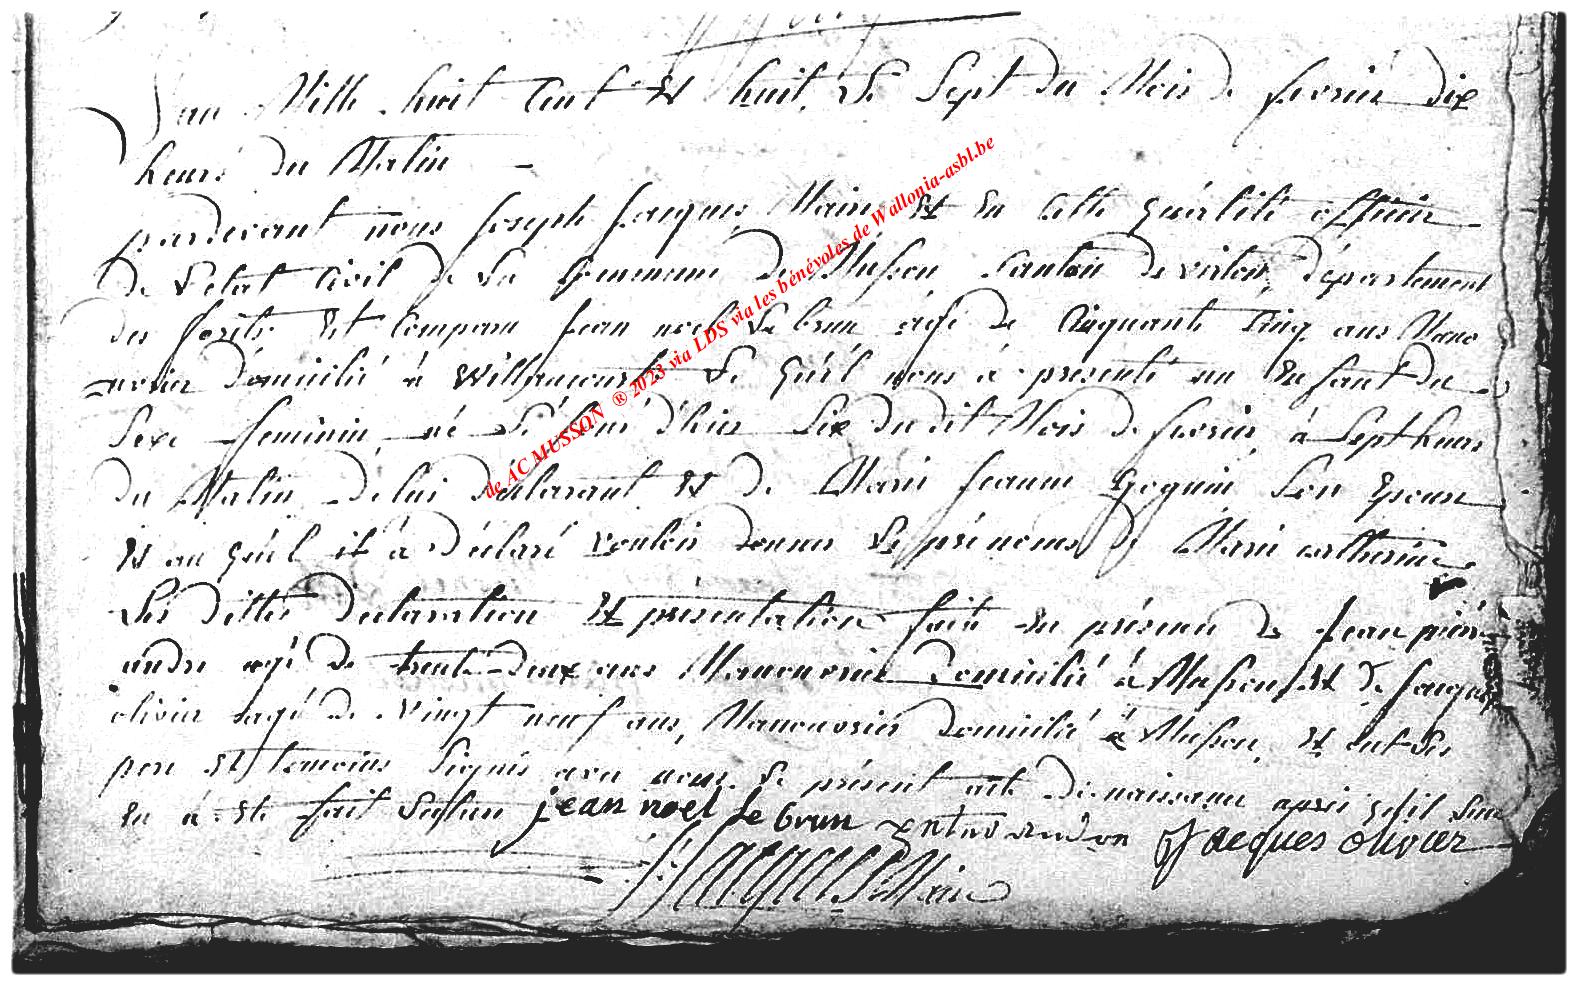 Lan Mille huit Cent et huit, Le Sept du Mois de fevrier dix
heure du Matin
pardevant nous Joseph Jacques Maire et en Cette quálité officier
de Letat Civil de La Commune de Musson Canton de virton département
des forêts Est Comparu Jean noel Le brun agé de Cinquante Cinq ans Mano
uvrier domicilié à Willancourt Le quel nous à présenté un Enfant du
Sexe feminin né d'hier Six du dit Mois de fevrier à Sept heurs
du Matin de lui déclarant et de Marie Jeanne Goguin Son Epouse
et au quel il à déclaré vouloir donner Les prénoms de Marie catherine
Les dittes declaration et présentation faite en présence de Jean pierre
andre agé de trente-deux ans Manouvrier Domicilié à Musson, et de Jacques
olivier agé de vingt neuf ans, Manouvrier domicilié à Musson, et ont Les
pere et temoins Signés avec nous Le présent acte de naissance après qu'il Leur
en à Eté fait Lecture jean noël le brun Jacques olivier
Jacques Maire
de AC MUSSON ® 2023 via LDS via les bénévoles de Wallonia-asbl.be